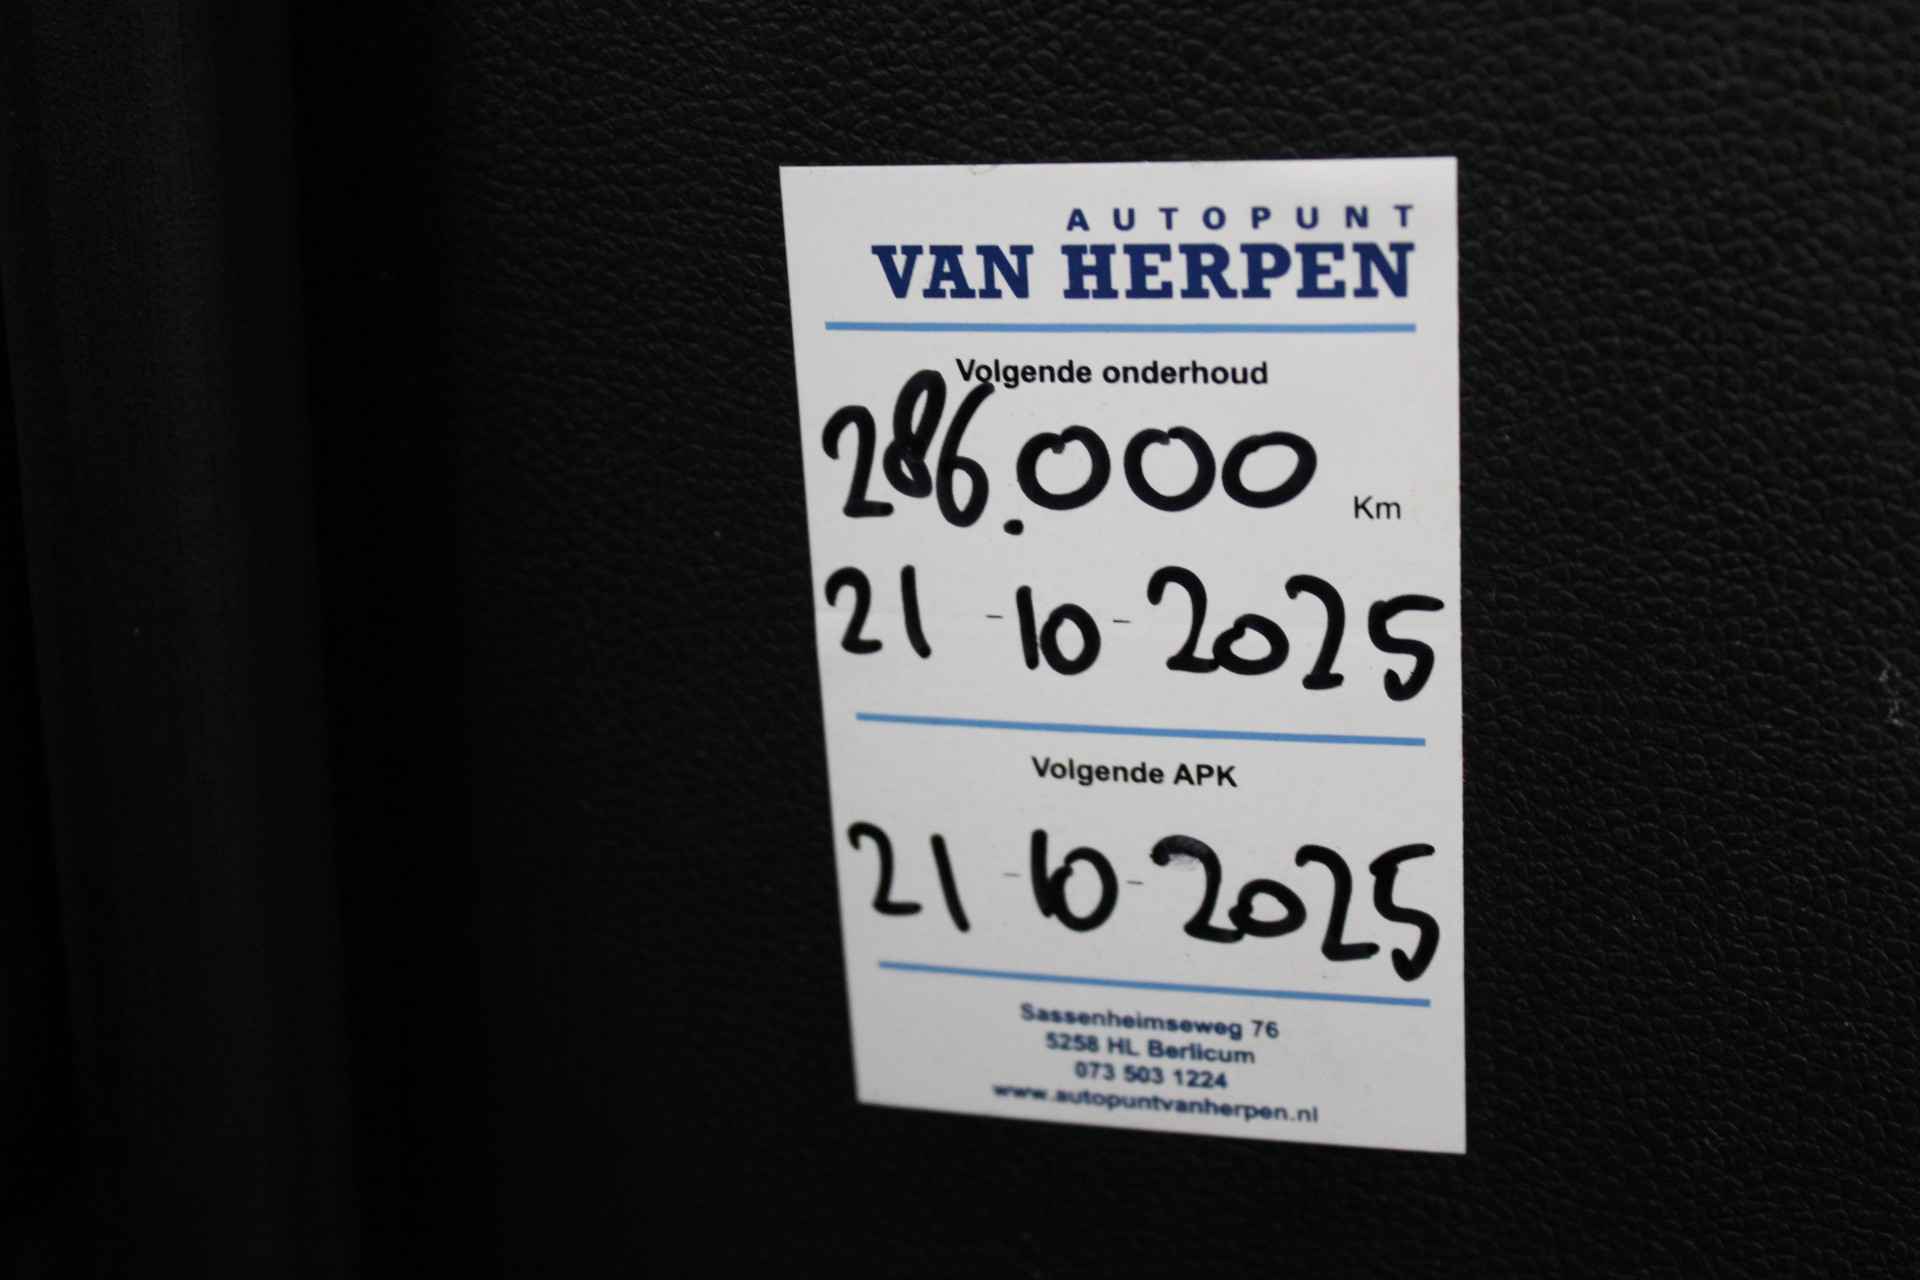 AUTOPUNT
VAN HERPEN
Volgende onderhoud
286.000 Km
21 - 10 - 2025
Volgende APK
21 - 10 - 2025
Sassenheimseweg 76
5258 HL Berlicum
073 503 1224
www.autopuntvanherpen.nl